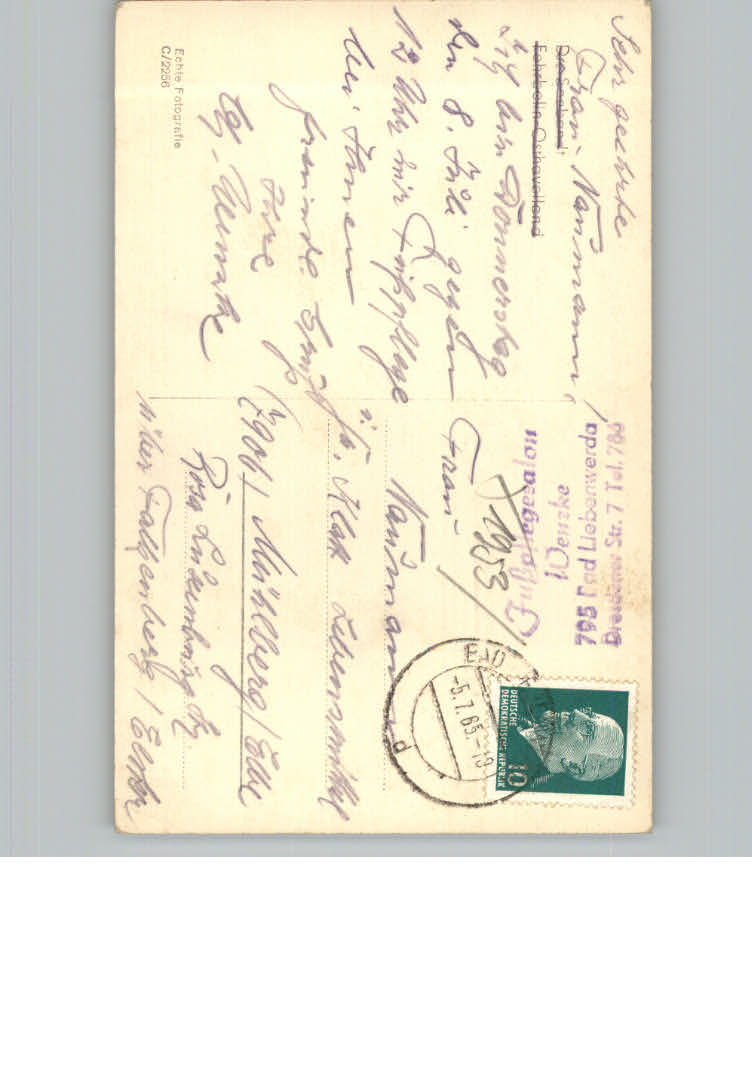 Sehr geehrte
Frau Naumann,
Ich bin Donnerstag
den 8. Juli gegen
12 Uhr zur Fußpflege
bei Ihnen
freundl. Grüße
Ihre
Echte Fotografie
C/2256
Fußpflegesalon
Wenzke
795 Bad Liebenwerda
Str. 7 Tel. 786
1953
Frau
Naumann
Lebensmittel
(7906) Mühlberg/Elbe
Rosa Luxemburg Str.
über Falkenberg/Elster
BAD
-5.7.65.-19
d
DEUTSCHE
DEMOKRATISCHE REPUBLIK
10